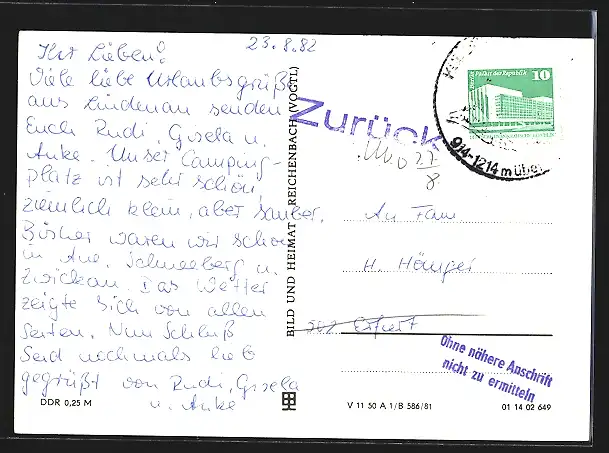 23.8.82
Ihr Lieben!
Viele liebe Urlaubsgrüße
aus Lindenau senden
Euch Rudi, Gisela u.
Anke. Unser Camping-
platz ist sehr schön
ziemlich klein, aber sauber.
Bisher waren wir schon
in Aue, Schneeberg u.
Zwickau. Das Wetter
zeigte sich von allen
Seiten. Nun Schluß
Seid nochmals lieb
gegrüßt von Rudi, Gisela
u. Anke
DDR 0,25 M
BILD UND HEIMAT REICHENBACH (VOGTL)
Zurück
27
8
Berlin, Palast der Republik 10
914-1214 m über
An Fam
H.
502 Erfurt
Ohne nähere Anschrift
nicht zu ermitteln
V 11 50 A 1/B 586/81
01 14 02 649